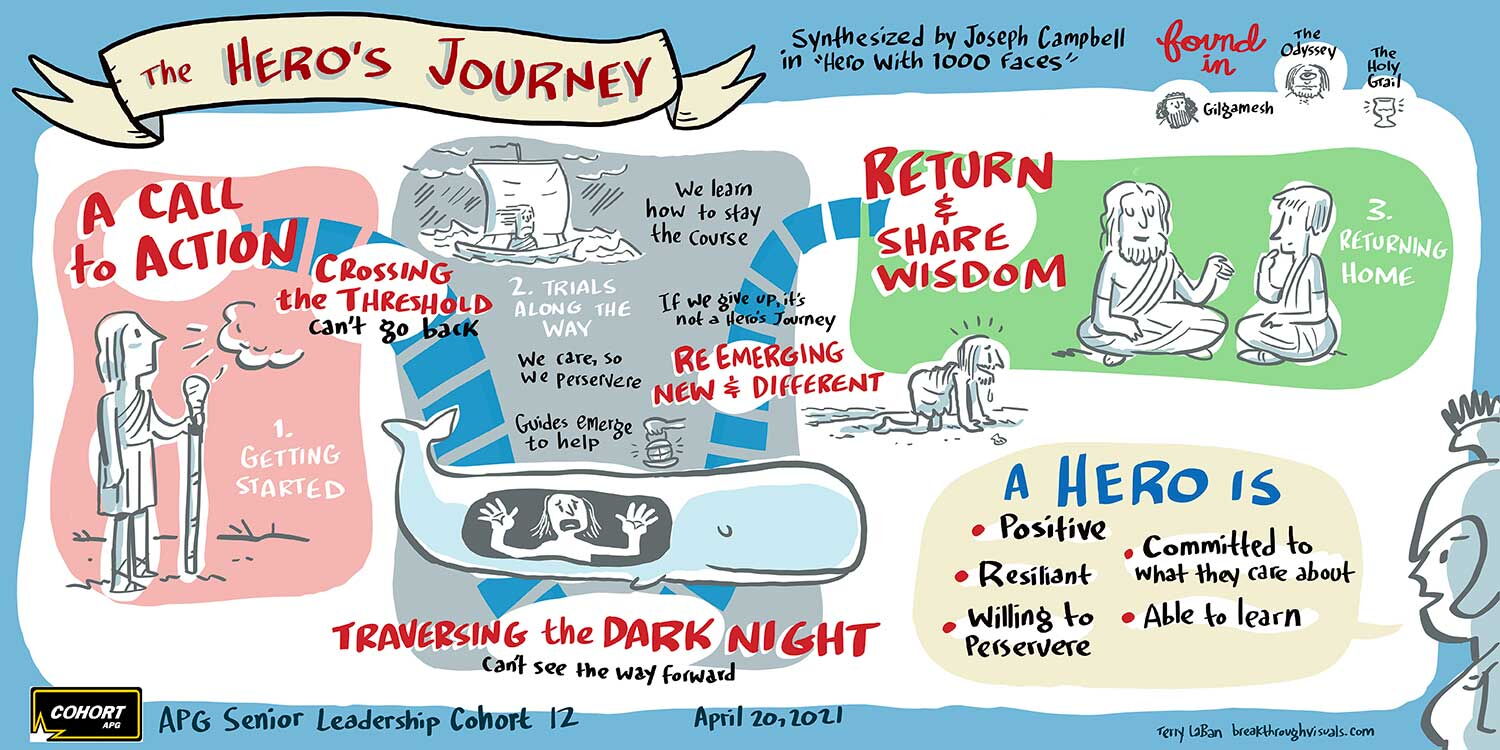 The HERO'S JOURNEY
Synthesized by Joseph Campbell
in "Hero With 1000 Faces"
found
in
Gilgamesh
The
Odyssey
The
Holy
Grail
A CALL
to ACTION
1.
GETTING
STARTED
CROSSING
the THRESHOLD
can't go back
We learn
how to stay
the course
2. TRIALS
ALONG THE
WAY
If we give up, it's
not a Hero's Journey
We care, so
we perservere
Guides emerge
to help
RE EMERGING
NEW & DIFFERENT
TRAVERSING the DARK NIGHT
Can't see the way forward
RETURN
&
SHARE
WISDOM
3.
RETURNING
HOME
A HERO IS
• Positive
• Resiliant
• Willing to
Perservere
• Committed to
what they care about
• Able to learn
COHORT
APG
APG Senior Leadership Cohort 12
April 20, 2021
Terry LaBan breakthroughvisuals.com